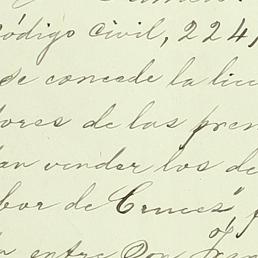 código civil, 224,
se concede la lice
ores de las pren
an vender los de
bor de Cruces"
entre Don